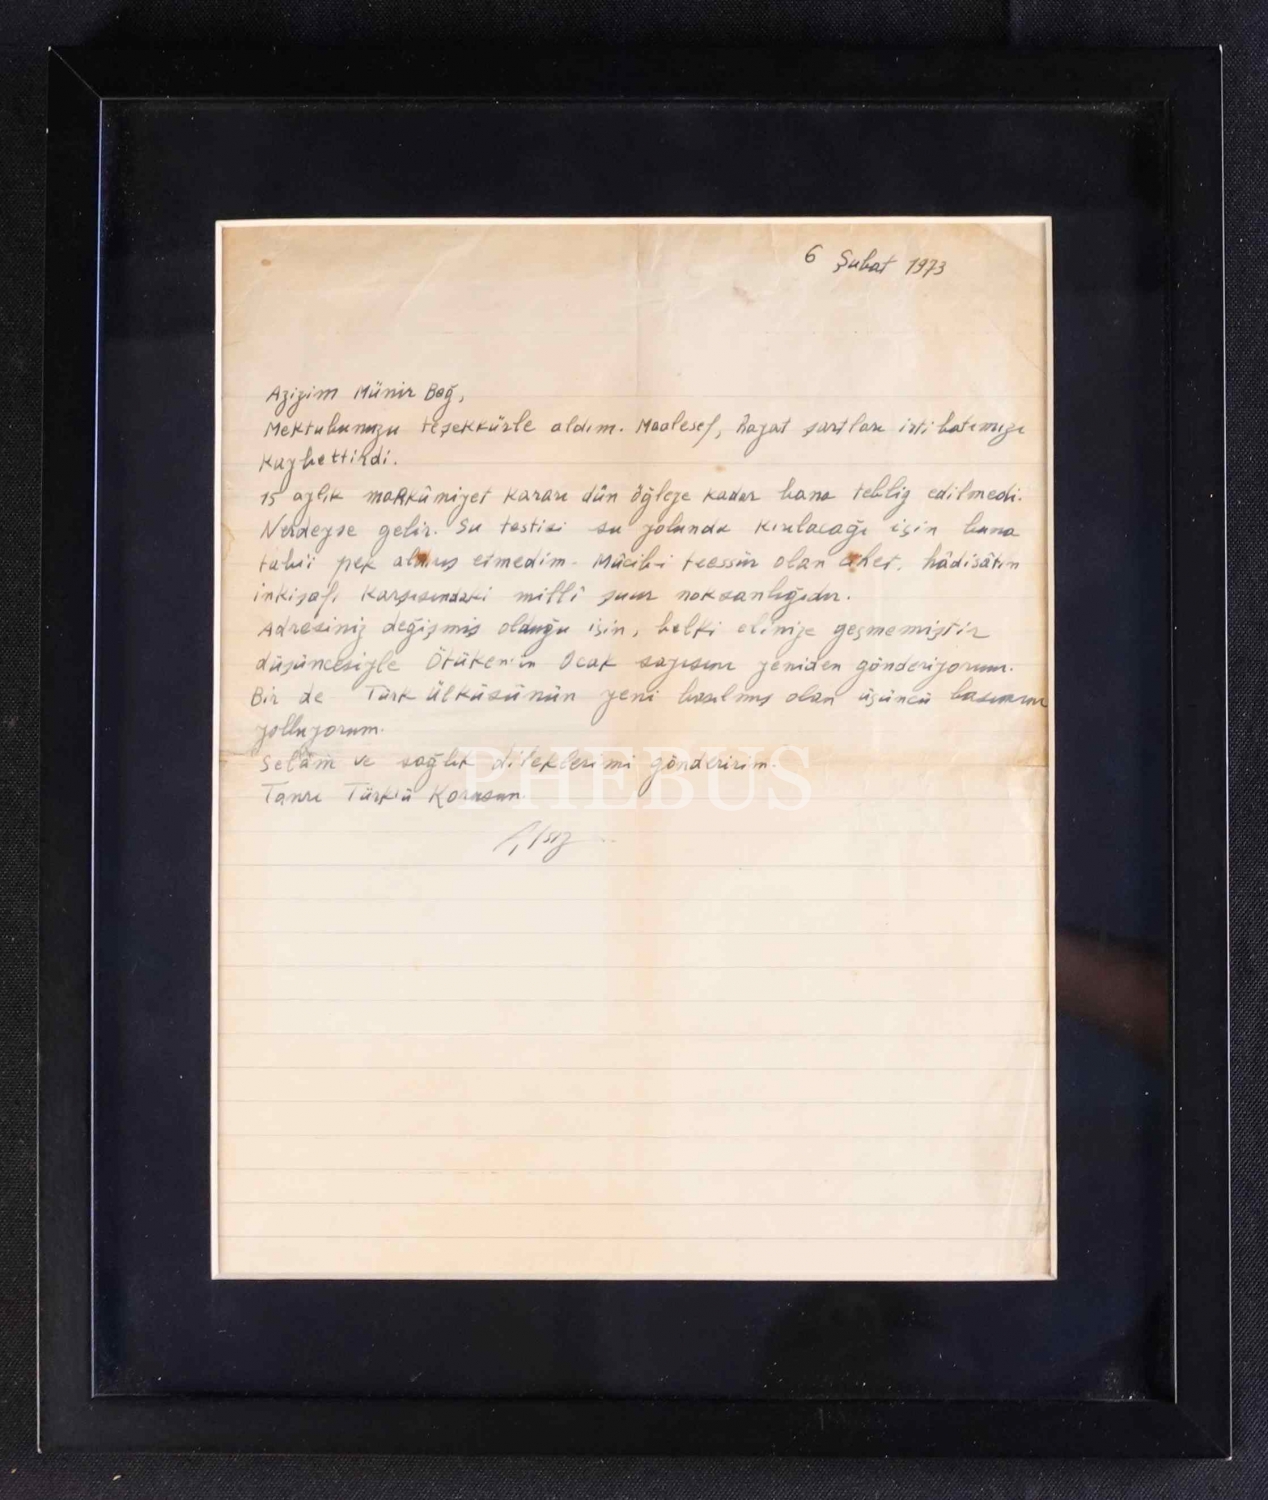 6 Şubat 1973
Azizim Münir Beğ,
Mektubunuzu teşekkürle aldım. Maalesef, hayat şartları irtibatımızı
kaybettirdi.
15 aylık mahkûmiyet kararı dün öğleye kadar bana tebliğ edilmedi.
Nerdeyse gelir. Su testisi su yolunda kırılacağı için buna
tabiî pek aldırış etmedim. Mûcib-i teessür olan cihet, hâdisâtın
inkişafı karşısındaki millî şuur noksanlığıdır.
Adresiniz değişmiş olduğu için, belki elinize geçmemiştir
düşüncesiyle Ötüken'in Ocak sayısını yeniden gönderiyorum.
Bir de Türk Ülküsünün yeni basılmış olan üçüncü basımını
yolluyorum.
Selâm ve sağlık dileklerimi gönderirim.
Tanrı Türk'ü Korusun.
Atsız
PHEBUS